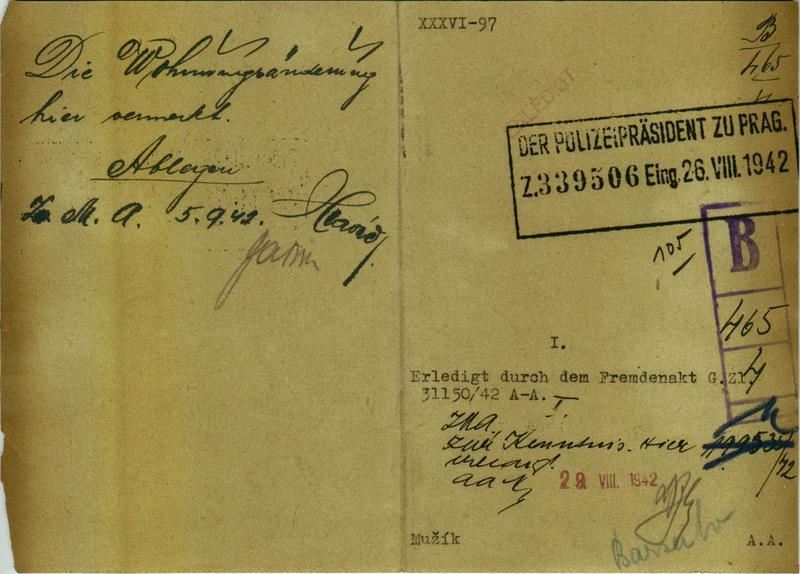 Die Wohnungsänderung
hier vermerkt.
Ablegen
M. A. 5.9.42.
XXXVI-97
B
465
4
ERLEDIGT
DER POLIZEIPRÄSIDENT ZU PRAG.
Z.339506 Eing. 26. VIII. 1942
105
B
465
4
I.
Erledigt durch dem Fremdenakt G.Zl.
31150/42 A-A.
II.
zur Kenntnis. Hier
29 VIII. 1942
Mužík
A.A.